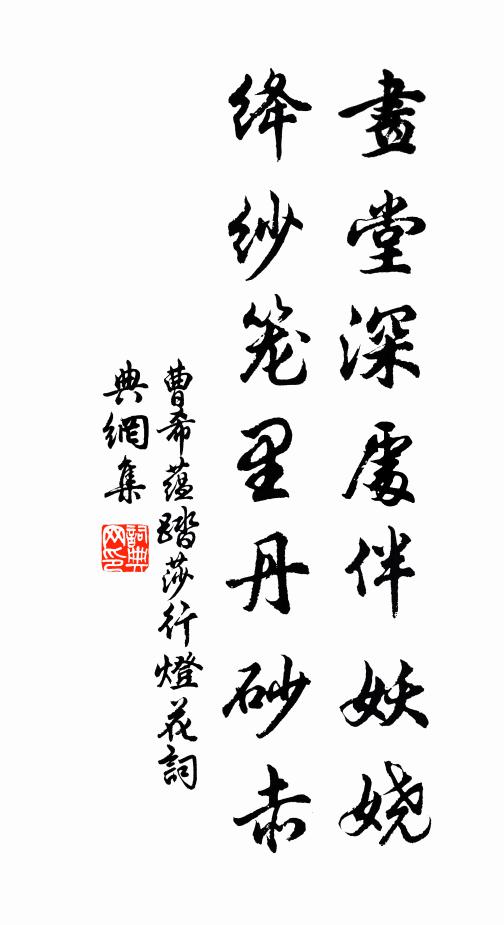 畫堂深處伴妖娆
絳紗笼里丹砂赤
曹希蕴踏莎行燈花詞
典網集
詞典網印